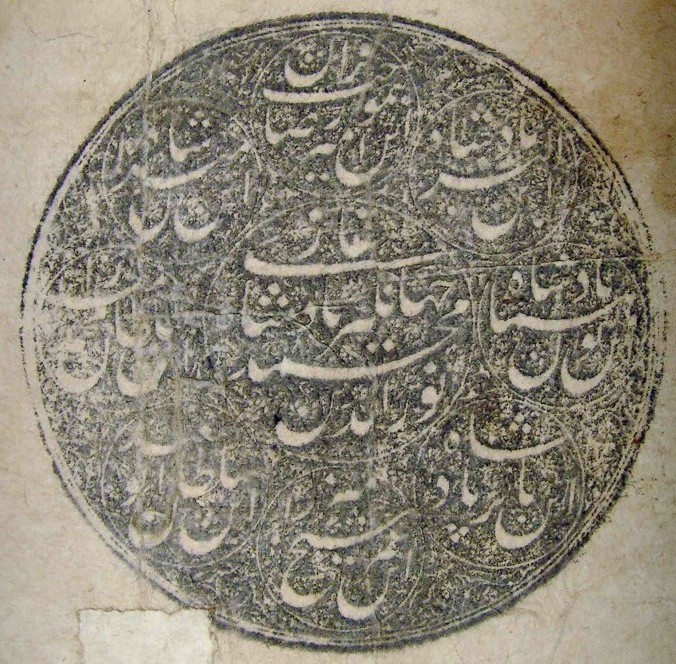 نورالدین
محمد
جهانگیر پادشاه
غازی
ابن اکبر پادشاه
ابن همایون پادشاه
ابن بابر پادشاه
ابن عمر شیخ
ابن سلطان ابو
ابن سلطان
ابن میران شاه
ابن امیر تیمور صاحب قران